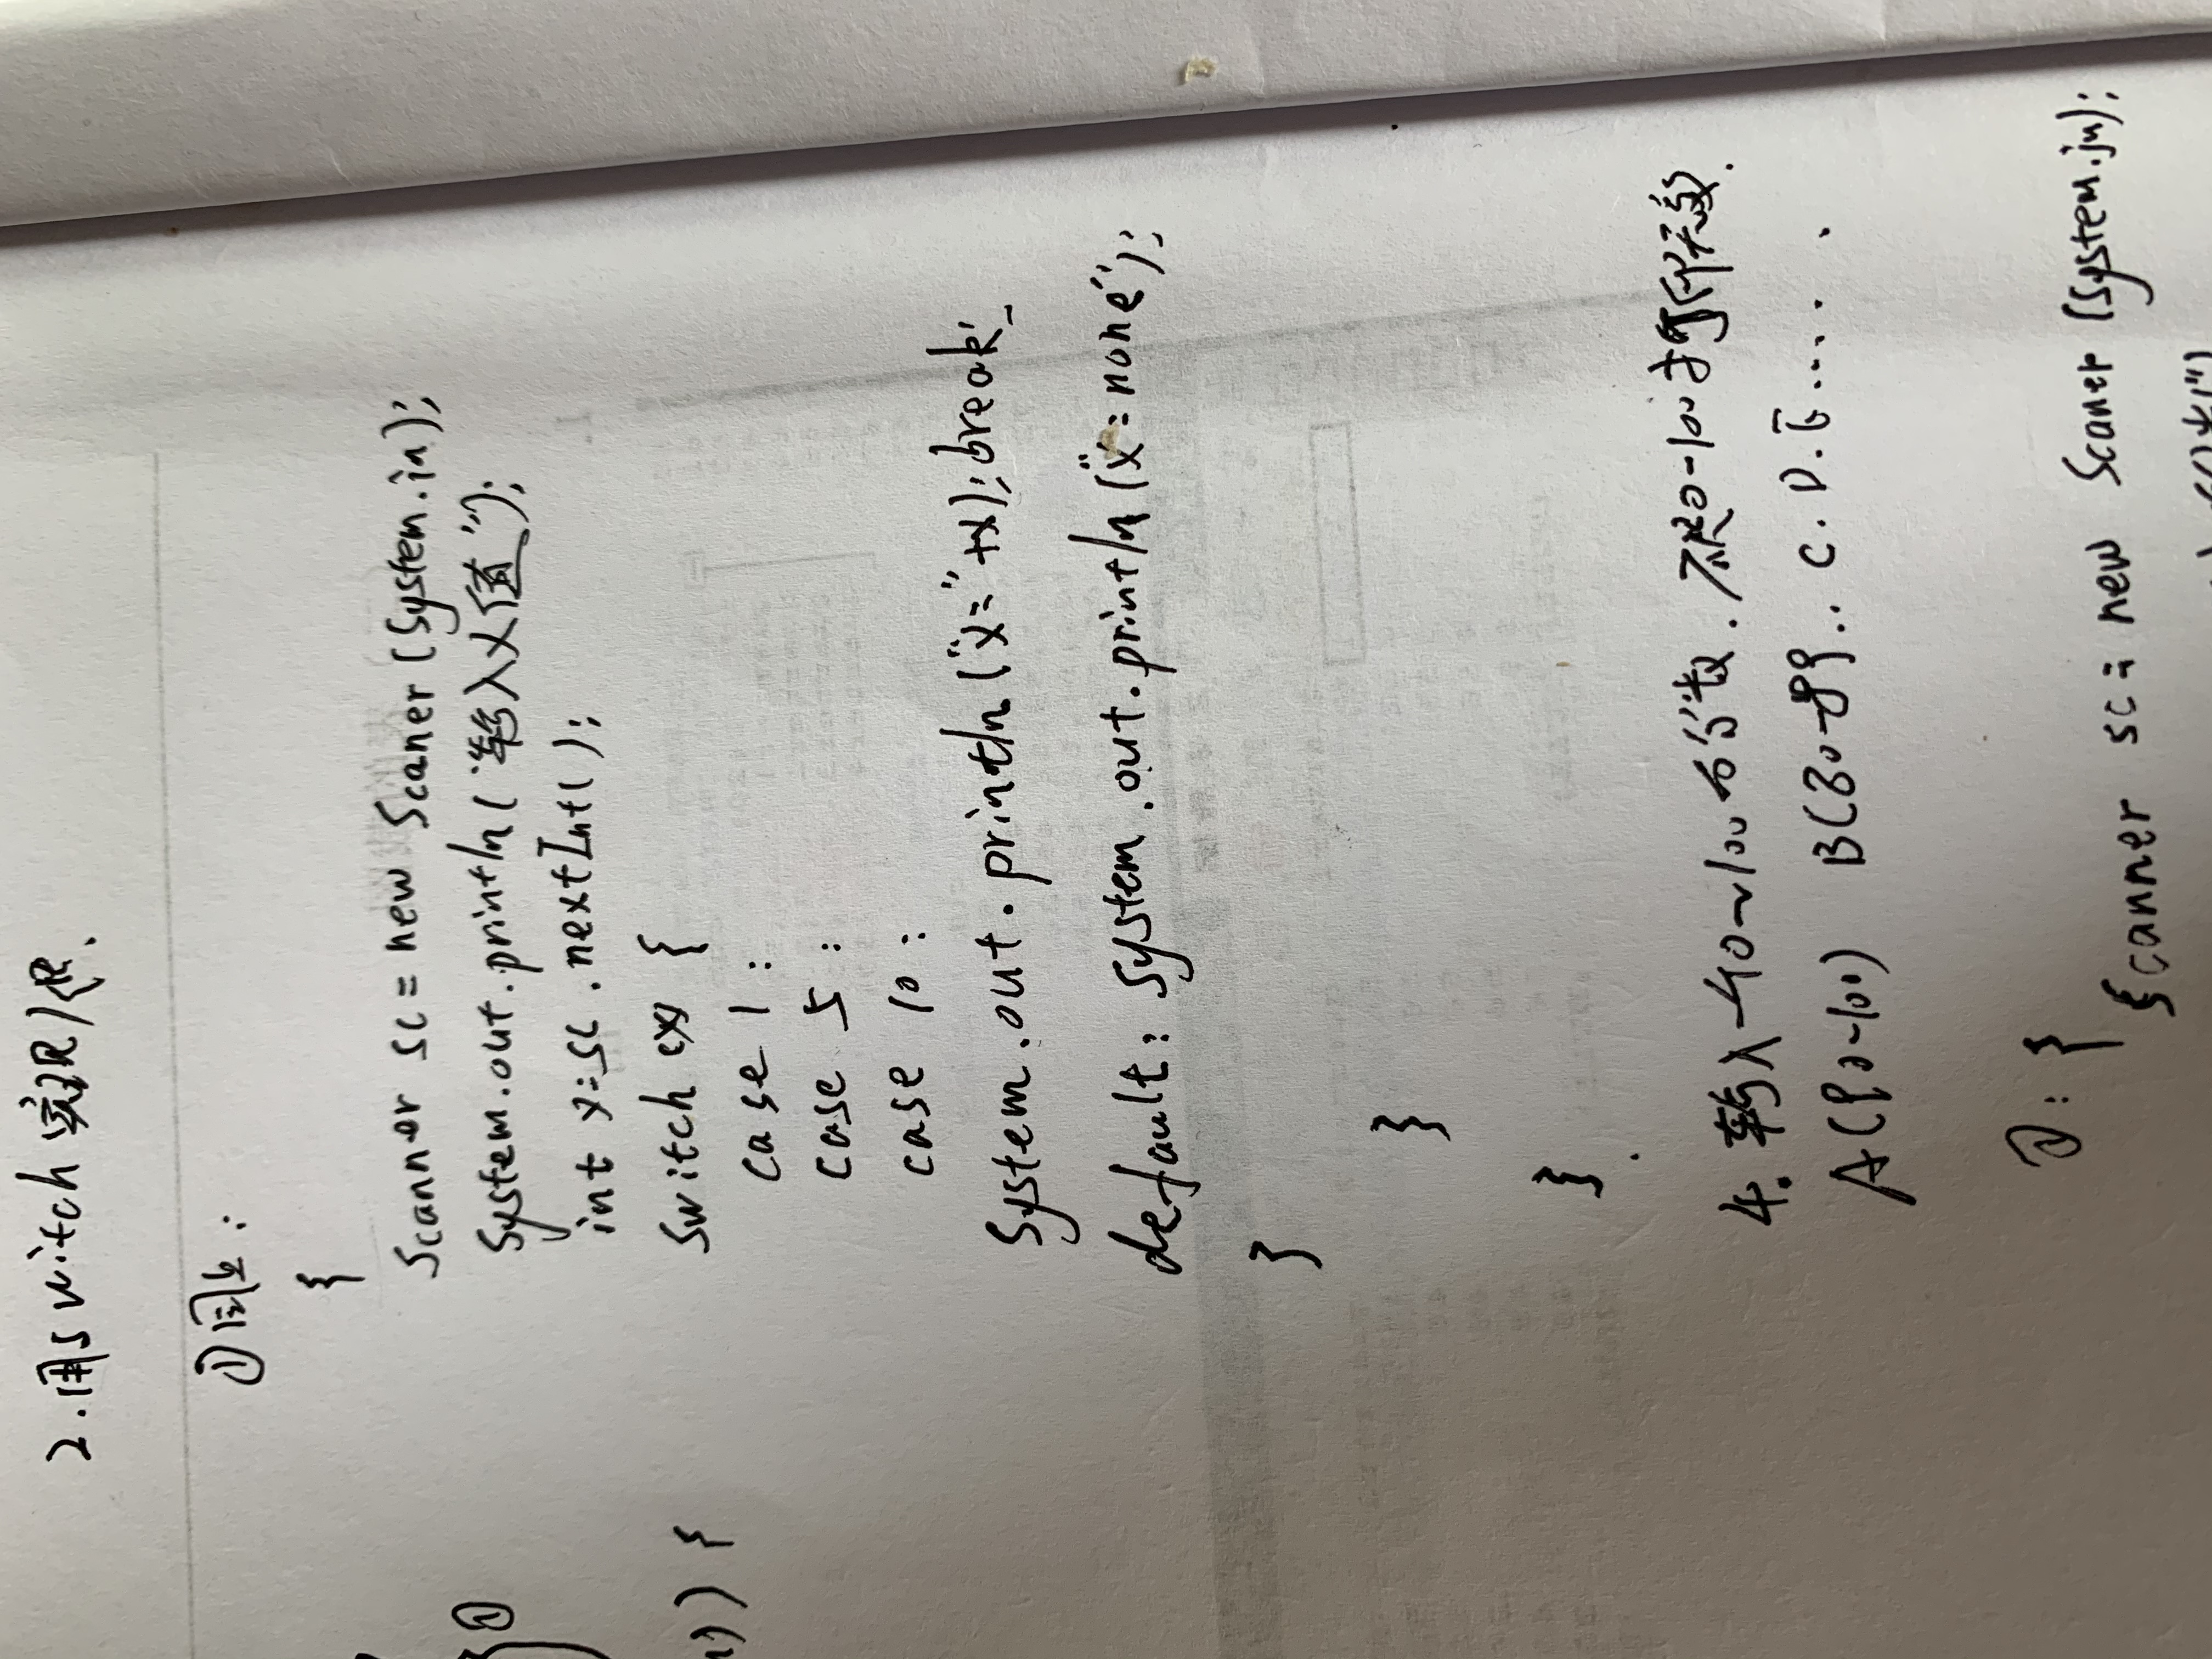 2.用switch实现/代
①同上:
{
Scanner sc = new Scaner (System.in);
System.out.println ("输入X值");
int x=sc.nextInt();
switch (x) {
case 1 :
case 5 :
case 10 :
System.out.println ("x="+x); break;
default: System.out.println ("x=none");
}
}
}
4. 输入-40~100的分数. 0-100才
A(90~100) B(80-89).. C.D.E.....
①: {
Scanner sc = new Scaner (System.in);